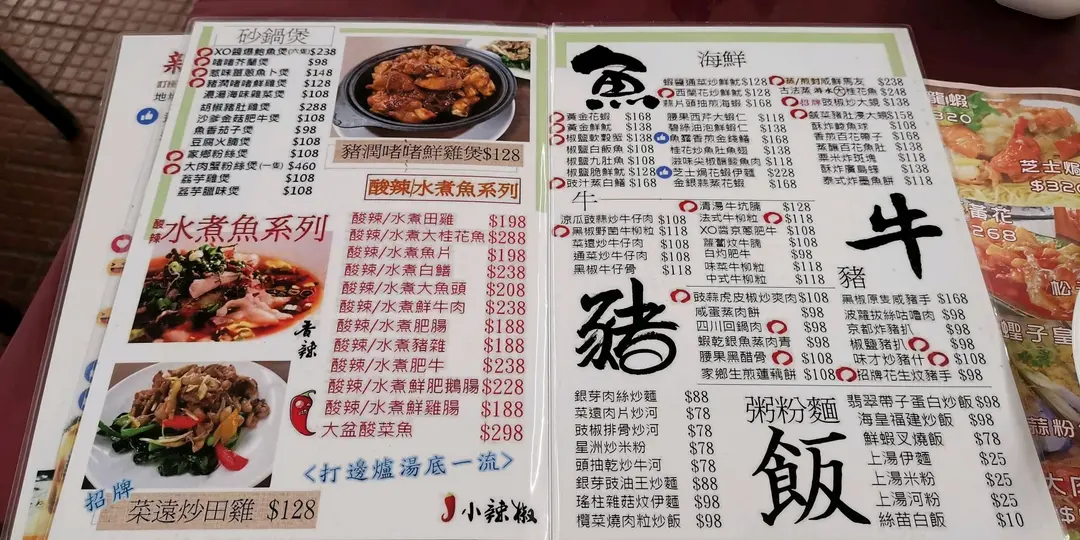 砂鍋煲
XO醬爆鮑魚煲(六隻)$238
啫啫芥蘭煲 $98
惹味薑蔥魚卜煲 $148
豬潤啫啫鮮雞煲 $128
濃湯海味雞菜煲 $108
胡椒豬肚雞煲 $288
沙爹金菇肥牛煲 $108
魚香茄子煲 $98
豆腐火腩煲 $108
家鄉粉絲煲 $108
大肉蟹粉絲煲(一隻) $460
荔芋雞煲 $108
荔芋臘味煲 $108
豬潤啫啫鮮雞煲$128
酸辣水煮魚系列
酸辣水煮魚系列
香辣
酸辣/水煮田雞 $198
酸辣/水煮大桂花魚 $288
酸辣/水煮魚片 $198
酸辣/水煮白鱔 $238
酸辣/水煮大魚頭 $208
酸辣/水煮鮮牛肉 $238
酸辣/水煮肥腸 $188
酸辣/水煮豬雜 $188
酸辣/水煮肥牛 $238
酸辣/水煮鮮肥鵝腸 $228
酸辣/水煮鮮雞腸 $188
大盆酸菜魚 $298
<打邊爐湯底一流>
招牌
菜遠炒田雞 $128
小辣椒
魚
海鮮
蝦醬通菜炒鮮魷 $128
西蘭花炒鮮魷 $128
蒜片頭抽煎海蝦 $168
黃金花蝦 $168
黃金鮮魷 $138
椒鹽軟殼蟹 $138
椒鹽白飯魚 $108
椒鹽九肚魚 $108
椒鹽脆鮮魷 $128
豉汁蒸白鱔 $168
腰果西芹大蝦仁 $118
碧綠油泡鮮蝦仁 $118
魚露香煎金錢鱔 $168
桂花炒魚肚魚翅 $138
滋味尖椒釀鯪魚肉 $118
芝士焗花蝦伊麵 $228
金銀蒜蒸花蝦 $168
$238
古法蒸 大桂花魚 $248
招牌豉椒炒大蜆 $138
鹹菜豬肚浸大蜆$158
酥炸鯪魚球 $108
香煎百花帶子 $168
蒸釀百花魚肚 $138
粟米炸斑塊 $118
酥炸廣島蠔 $138
泰式炸墨魚餅 $118
牛
牛
涼瓜豉蒜炒牛仔肉 $108
黑椒野菌牛柳粒 $118
菜遠炒牛仔肉 $108
通菜炒牛仔肉 $108
黑椒牛仔骨 $118
清湯牛坑腩 $128
法式牛柳粒 $118
XO醬京蔥肥牛 $108
蘿蔔炆牛腩 $108
白灼肥牛 $98
味菜牛柳粒 $118
中式牛柳粒 $118
豬
豬
豉蒜虎皮椒炒爽肉$108
咸蛋蒸肉餅 $98
四川回鍋肉 $98
蝦乾銀魚蒸肉青 $98
腰果黑醋骨 $108
家鄉生煎蓮藕餅 $108
黑椒原隻咸豬手 $168
波蘿拔絲咕嚕肉 $98
京都炸豬扒 $98
椒鹽豬扒 $98
味才炒豬什 $108
招牌花生炆豬手 $98
粥粉麵
飯
銀芽肉絲炒麵 $88
菜遠肉片炒河 $78
豉椒排骨炒河 $78
星洲炒米粉 $78
頭抽乾炒牛河 $78
銀芽豉油王炒麵 $88
瑤柱雜菇炆伊麵 $98
欖菜燒肉粒炒飯 $98
翡翠帶子蛋白炒飯 $98
海皇福建炒飯 $98
鮮蝦叉燒飯 $78
上湯伊麵 $25
上湯米粉 $25
上湯河粉 $25
絲苗白飯 $10
龍蝦
320
芝士焗
$320
黃花
268
蒜粉